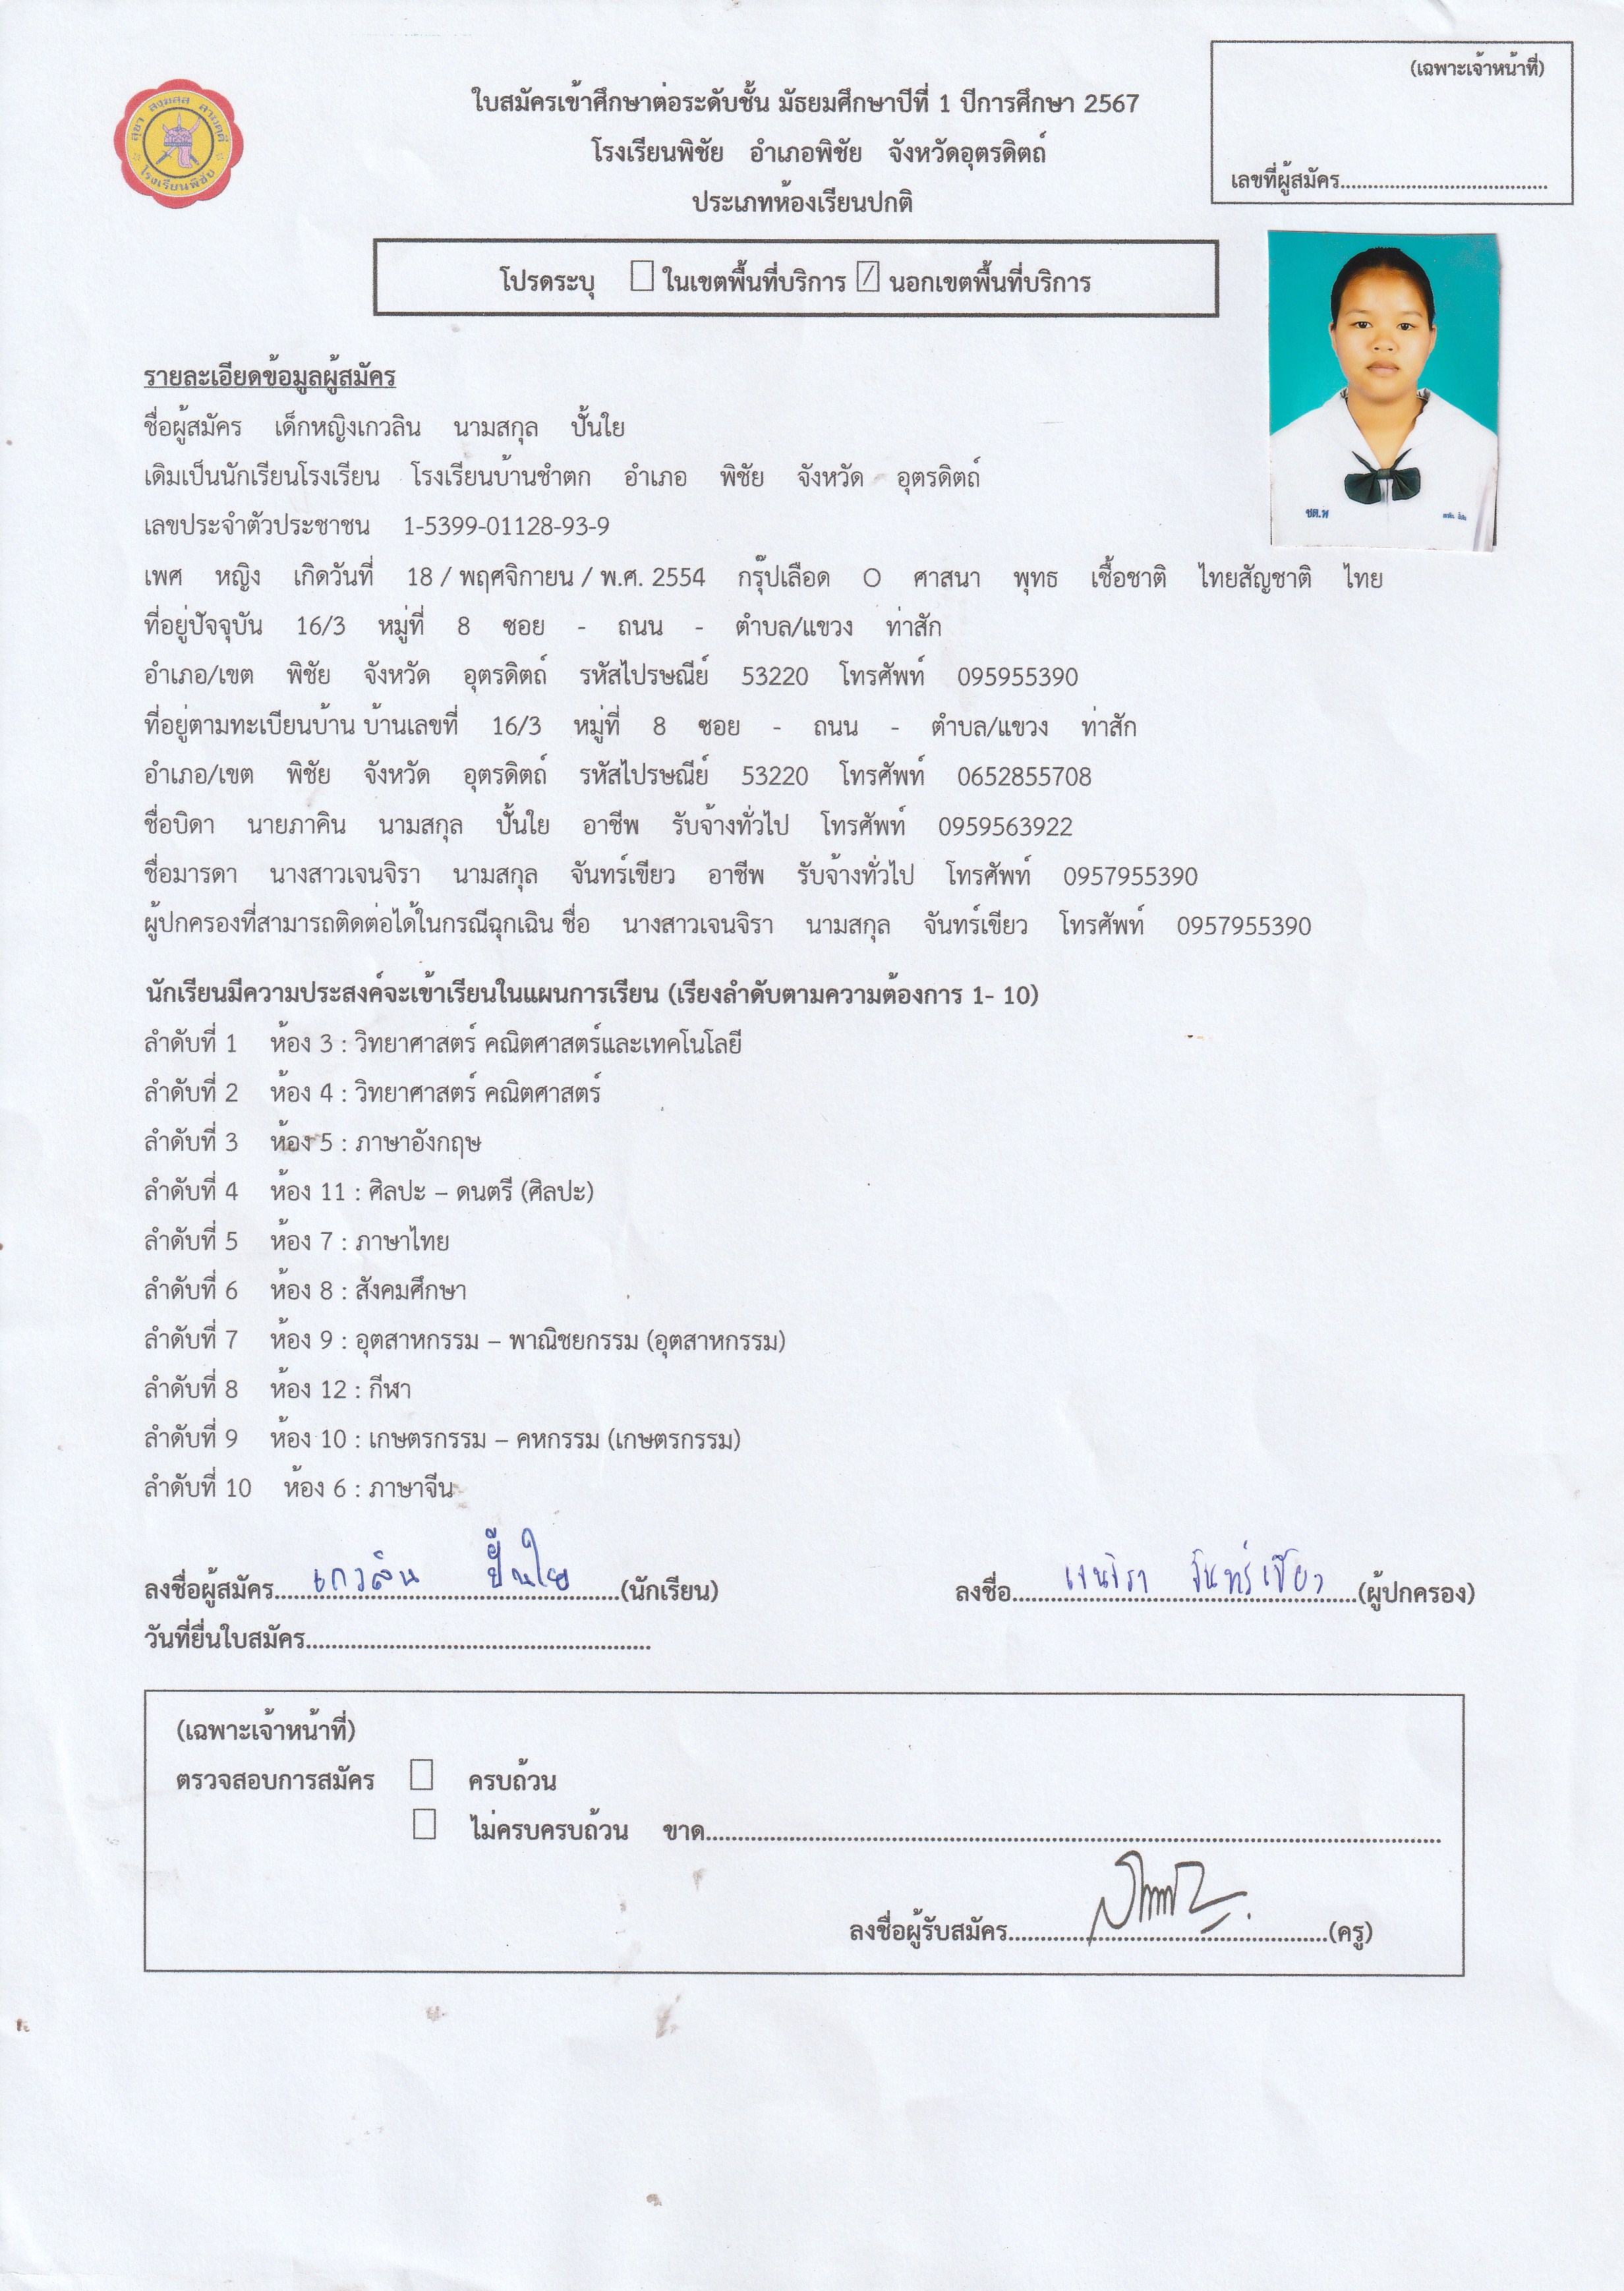 (เฉพาะเจ้าหน้าที่)
เลขที่ผู้สมัคร
โรงเรียนพิชัย
ใบสมัครเข้าศึกษาต่อระดับชั้น มัธยมศึกษาปีที่ 1 ปีการศึกษา 2567
โรงเรียนพิชัย อำเภอพิชัย จังหวัดอุตรดิตถ์
ประเภทห้องเรียนปกติ
โปรดระบุ ☐ ในเขตพื้นที่บริการ ☑ นอกเขตพื้นที่บริการ
ชต.ท
รายละเอียดข้อมูลผู้สมัคร
ชื่อผู้สมัคร เด็กหญิงเกวลิน นามสกุล ปั้นใย
เดิมเป็นนักเรียนโรงเรียน โรงเรียนบ้านชำตก อำเภอ พิชัย จังหวัด อุตรดิตถ์
เลขประจำตัวประชาชน 1-5399-01128-93-9
เพศ หญิง เกิดวันที่ 18 / พฤศจิกายน / พ.ศ. 2554 กรุ๊ปเลือด O ศาสนา พุทธ เชื้อชาติ ไทยสัญชาติ ไทย
ที่อยู่ปัจจุบัน 16/3 หมู่ที่ 8 ซอย - ถนน - ตำบล/แขวง ท่าสัก
อำเภอ/เขต พิชัย จังหวัด อุตรดิตถ์ รหัสไปรษณีย์ 53220 โทรศัพท์ 095955390
ที่อยู่ตามทะเบียนบ้าน บ้านเลขที่ 16/3 หมู่ที่ 8 ซอย - ถนน - ตำบล/แขวง ท่าสัก
อำเภอ/เขต พิชัย จังหวัด อุตรดิตถ์ รหัสไปรษณีย์ 53220 โทรศัพท์ 0652855708
ชื่อบิดา นายภาคิน นามสกุล ปั้นใย อาชีพ รับจ้างทั่วไป โทรศัพท์ 0959563922
ชื่อมารดา นางสาวเจนจิรา นามสกุล จันทร์เขียว อาชีพ รับจ้างทั่วไป โทรศัพท์ 0957955390
ผู้ปกครองที่สามารถติดต่อได้ในกรณีฉุกเฉิน ชื่อ นางสาวเจนจิรา นามสกุล จันทร์เขียว โทรศัพท์ 0957955390
นักเรียนมีความประสงค์จะเข้าเรียนในแผนการเรียน (เรียงลำดับตามความต้องการ 1- 10)
ลำดับที่ 1 ห้อง 3 : วิทยาศาสตร์ คณิตศาสตร์และเทคโนโลยี
ลำดับที่ 2 ห้อง 4 : วิทยาศาสตร์ คณิตศาสตร์
ลำดับที่ 3 ห้อง 5 : ภาษาอังกฤษ
ลำดับที่ 4 ห้อง 11 : ศิลปะ – ดนตรี (ศิลปะ)
ลำดับที่ 5 ห้อง 7 : ภาษาไทย
ลำดับที่ 6 ห้อง 8 : สังคมศึกษา
ลำดับที่ 7 ห้อง 9 : อุตสาหกรรม – พาณิชยกรรม (อุตสาหกรรม)
ลำดับที่ 8 ห้อง 12 : กีฬา
ลำดับที่ 9 ห้อง 10 : เกษตรกรรม – คหกรรม (เกษตรกรรม)
ลำดับที่ 10 ห้อง 6 : ภาษาจีน
ลงชื่อผู้สมัคร เกวลิน ปั้นใย (นักเรียน) ลงชื่อ เจนจิรา จันทร์เขียว (ผู้ปกครอง)
วันที่ยื่นใบสมัคร
(เฉพาะเจ้าหน้าที่)
ตรวจสอบการสมัคร ☐ ครบถ้วน
☐ ไม่ครบครบถ้วน ขาด
ลงชื่อผู้รับสมัคร (ครู)